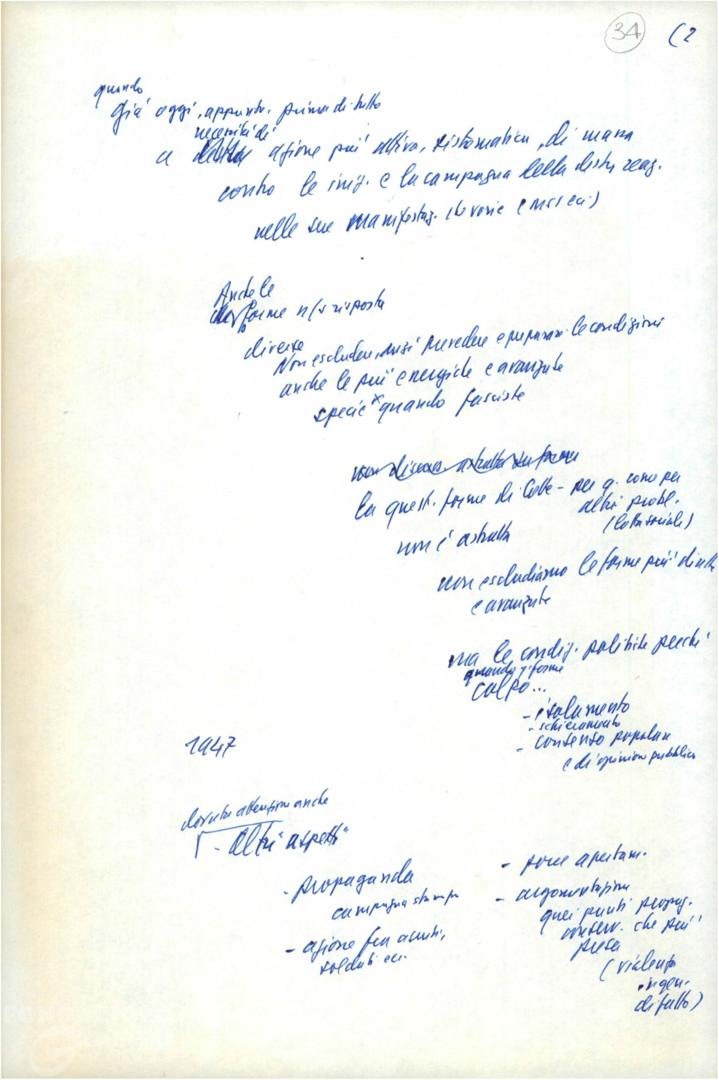 34 (2
quando
già oggi, appunto, prima di tutto
necessità di
a azione più attiva, sistematica, di massa
contro le iniz. e la campagna della destra reaz.
nelle sue manifestaz. diverse (MSI ecc)
Anche le
forme n/s risposta
diverse
Non escludere, anzi prevedere e preparare le condizioni
anche le più energiche e avanzate
specie quando fasciste
non diciamo astratta su forme
la quest. forme di lotte - per q. come per
altri probl.
(lotta sociale)
non è astratta
non escludiamo le forme più dirette
e avanzate
ma le condiz. politiche perché
quando forme
colpo...
- isolamento
- schieramento
- consenso popolare
e di opinione pubblica
1947
dovuta attenzione anche
- altri aspetti
- propaganda
campagna stampa
- azione fra agenti,
soldati ecc.
- porre apertam.
- argomentazione
quei punti propag.
conserv. che più
presa
(violento
ingen.
di fatto)